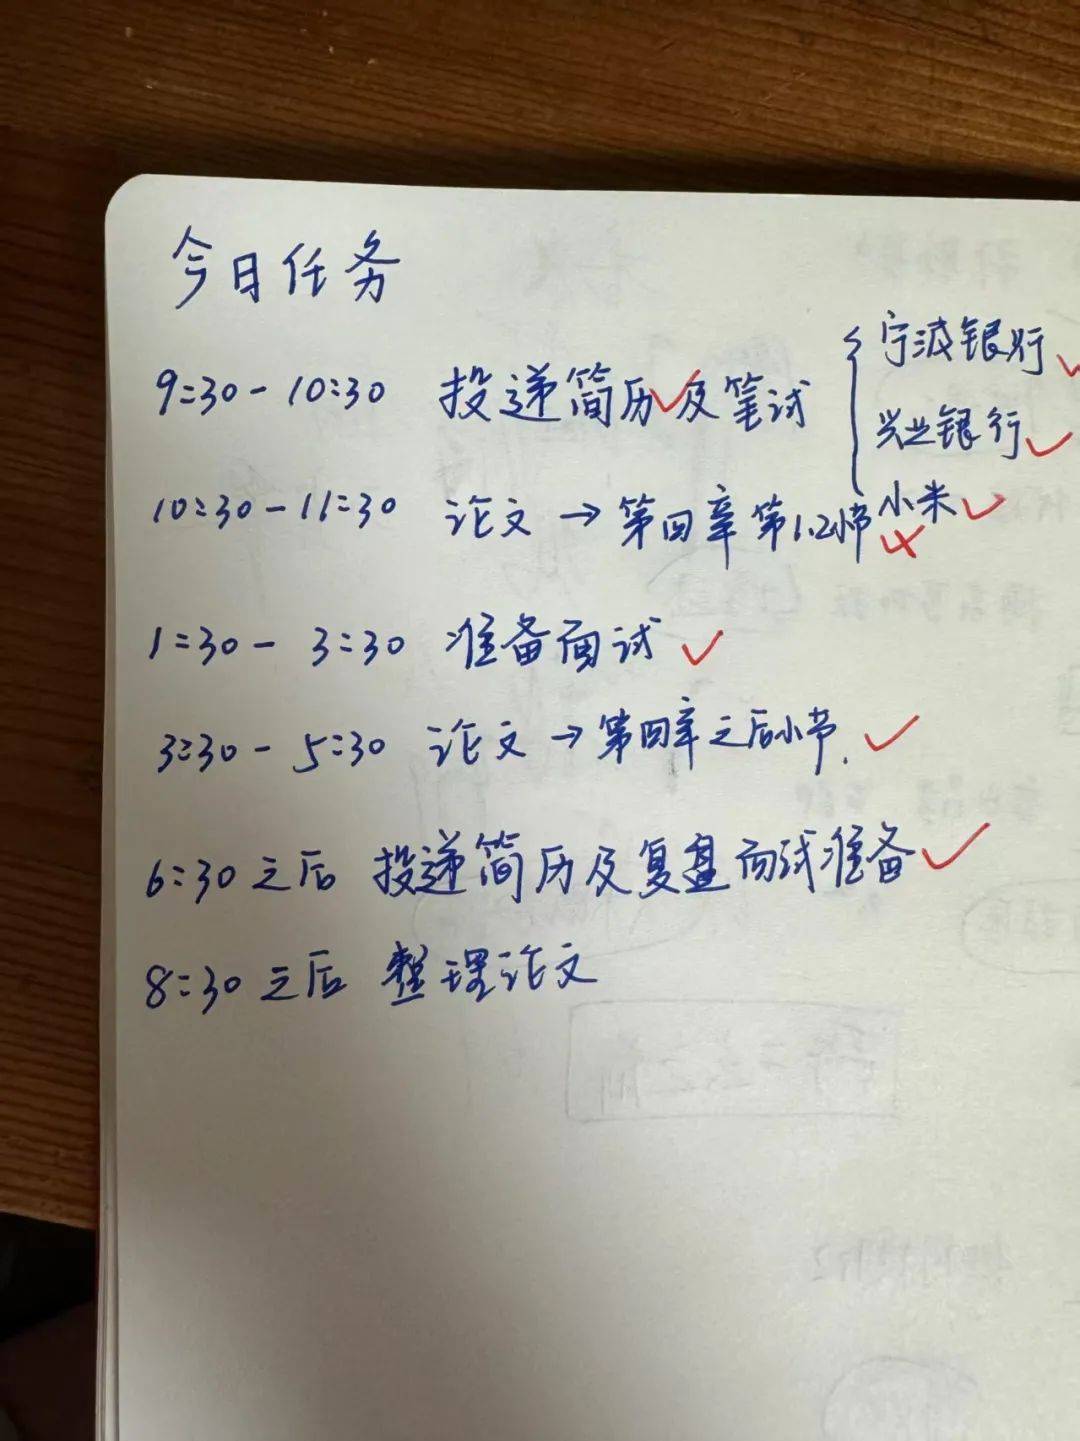 今日任务
9:30-10:30 投递简历及笔试
宁波银行
兴业银行
小米
10:30-11:30 论文→第四章第1.2小节
1:30-3:30 准备面试
3:30-5:30 论文→第四章之后小节.
6:30之后 投递简历及复盘面试准备
8:30之后 整理论文